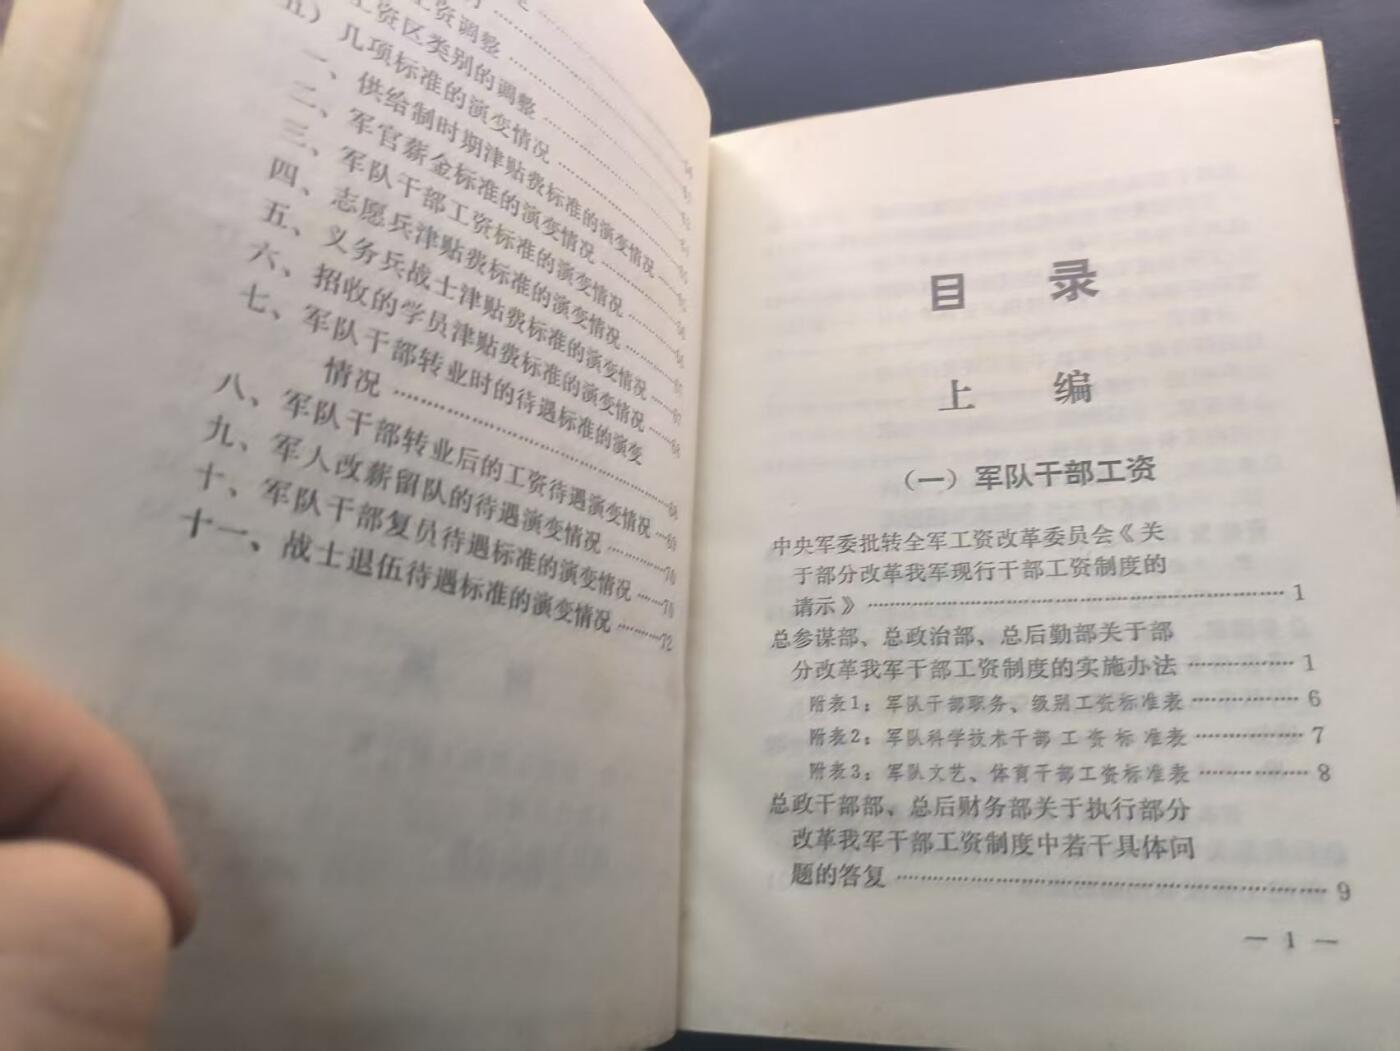 工资调整
工资区类别的调整
五）几项标准的演变情况
一、供给制时期津贴费标准的演变情况
二、军官薪金标准的演变情况
三、军队干部工资标准的演变情况
四、志愿兵津贴费标准的演变情况
五、义务兵战士津贴费标准的演变情况
六、招收的学员津贴费标准的演变情况
七、军队干部转业时的待遇标准的演变
情况……68
八、军队干部转业后的工资待遇演变情况……69
九、军人改薪留队的待遇演变情况……70
十、军队干部复员待遇标准的演变情况……71
十一、战士退伍待遇标准的演变情况……72
目 录
上 编
（一）军队干部工资
中央军委批转全军工资改革委员会《关
于部分改革我军现行干部工资制度的
请示》……1
总参谋部、总政治部、总后勤部关于部
分改革我军干部工资制度的实施办法……1
附表1：军队干部职务、级别工资标准表……6
附表2：军队科学技术干部工资标准表……7
附表3：军队文艺、体育干部工资标准表……8
总政干部部、总后财务部关于执行部分
改革我军干部工资制度中若干具体问
题的答复……9
— 1 —